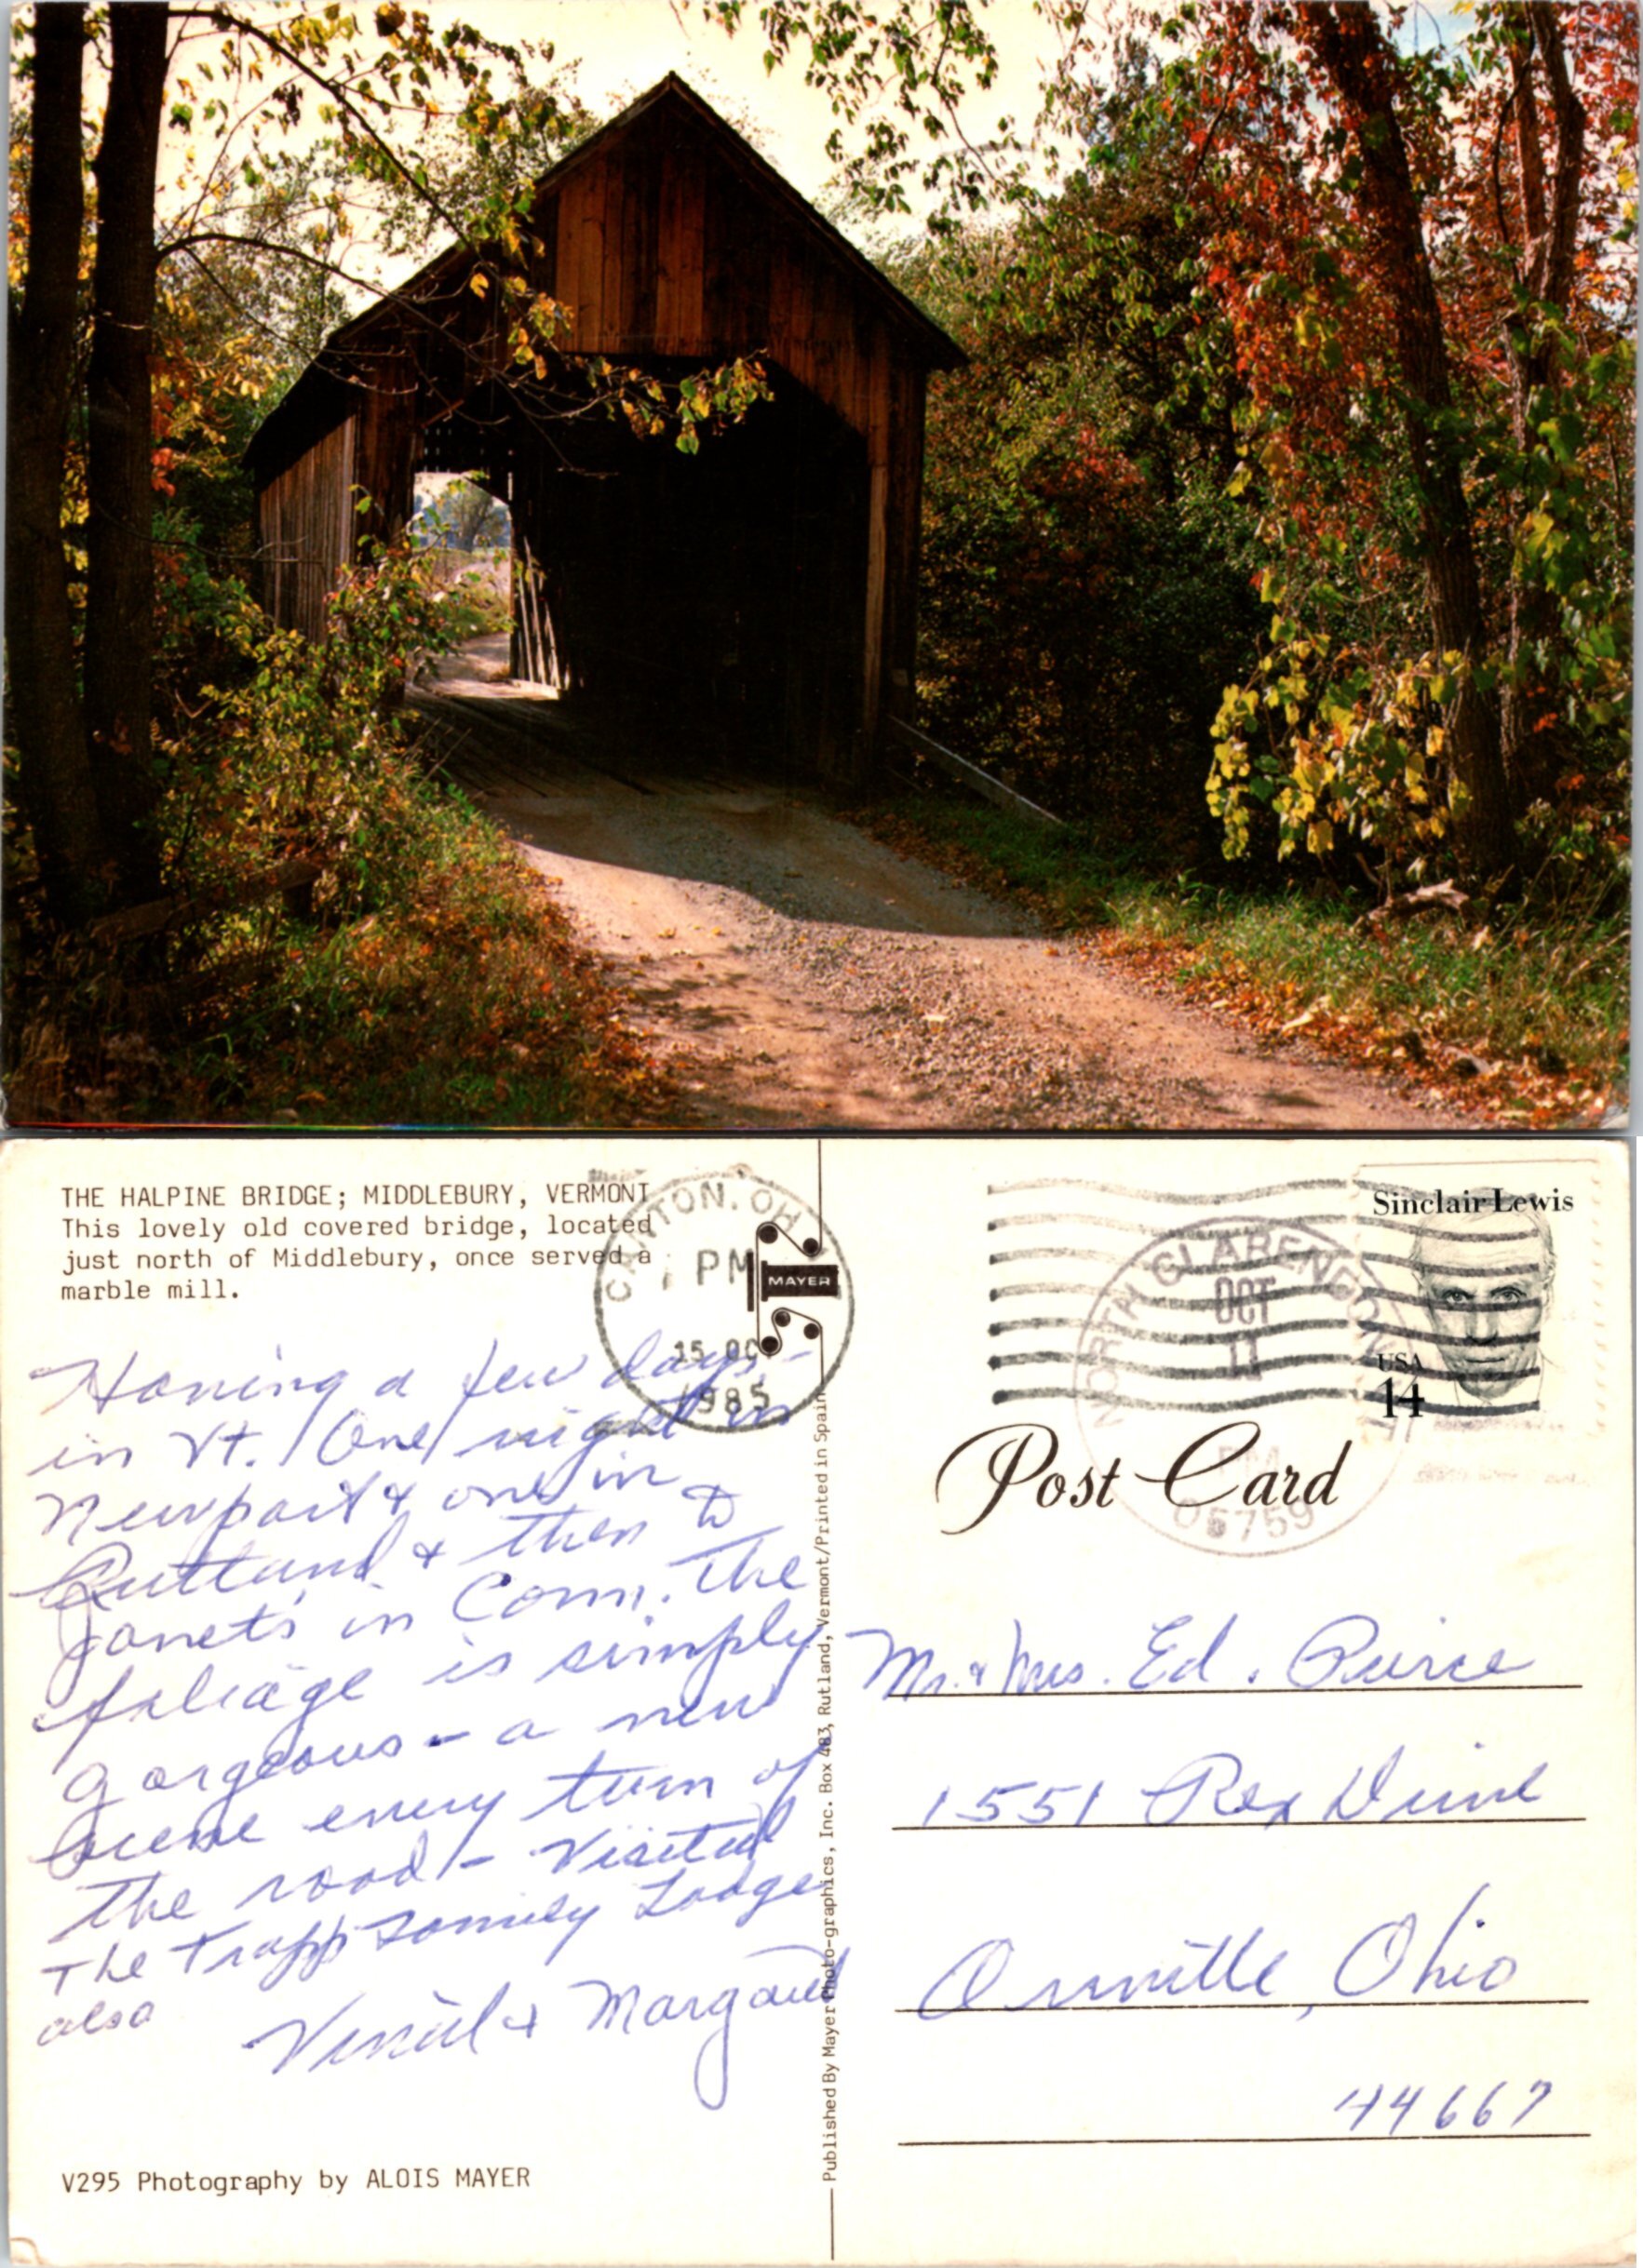 THE HALPINE BRIDGE; MIDDLEBURY, VERMONT
This lovely old covered bridge, located
just north of Middlebury, once served a
marble mill.
CANTON, OH
PM
15 OC
1985
MAYER
Having a few days -
in Vt. One night in
Newport & one in
Rutland & then to
Janet's in Conn. The
foliage is simply
gorgeous - a new
scene every turn of
the road - Visited
The Trapp Family Lodge
also
& Margaret
V295 Photography by ALOIS MAYER
Published By Mayer Photo-graphics, Inc. Box 483, Rutland, Vermont/Printed in Spain
NORTH CLARENDON
OCT
11
PM
05759
Sinclair Lewis
USA
14
Post Card
Mr. & Mrs. Ed. Pierce
1551 Rex Drive
Orrville, Ohio
44667